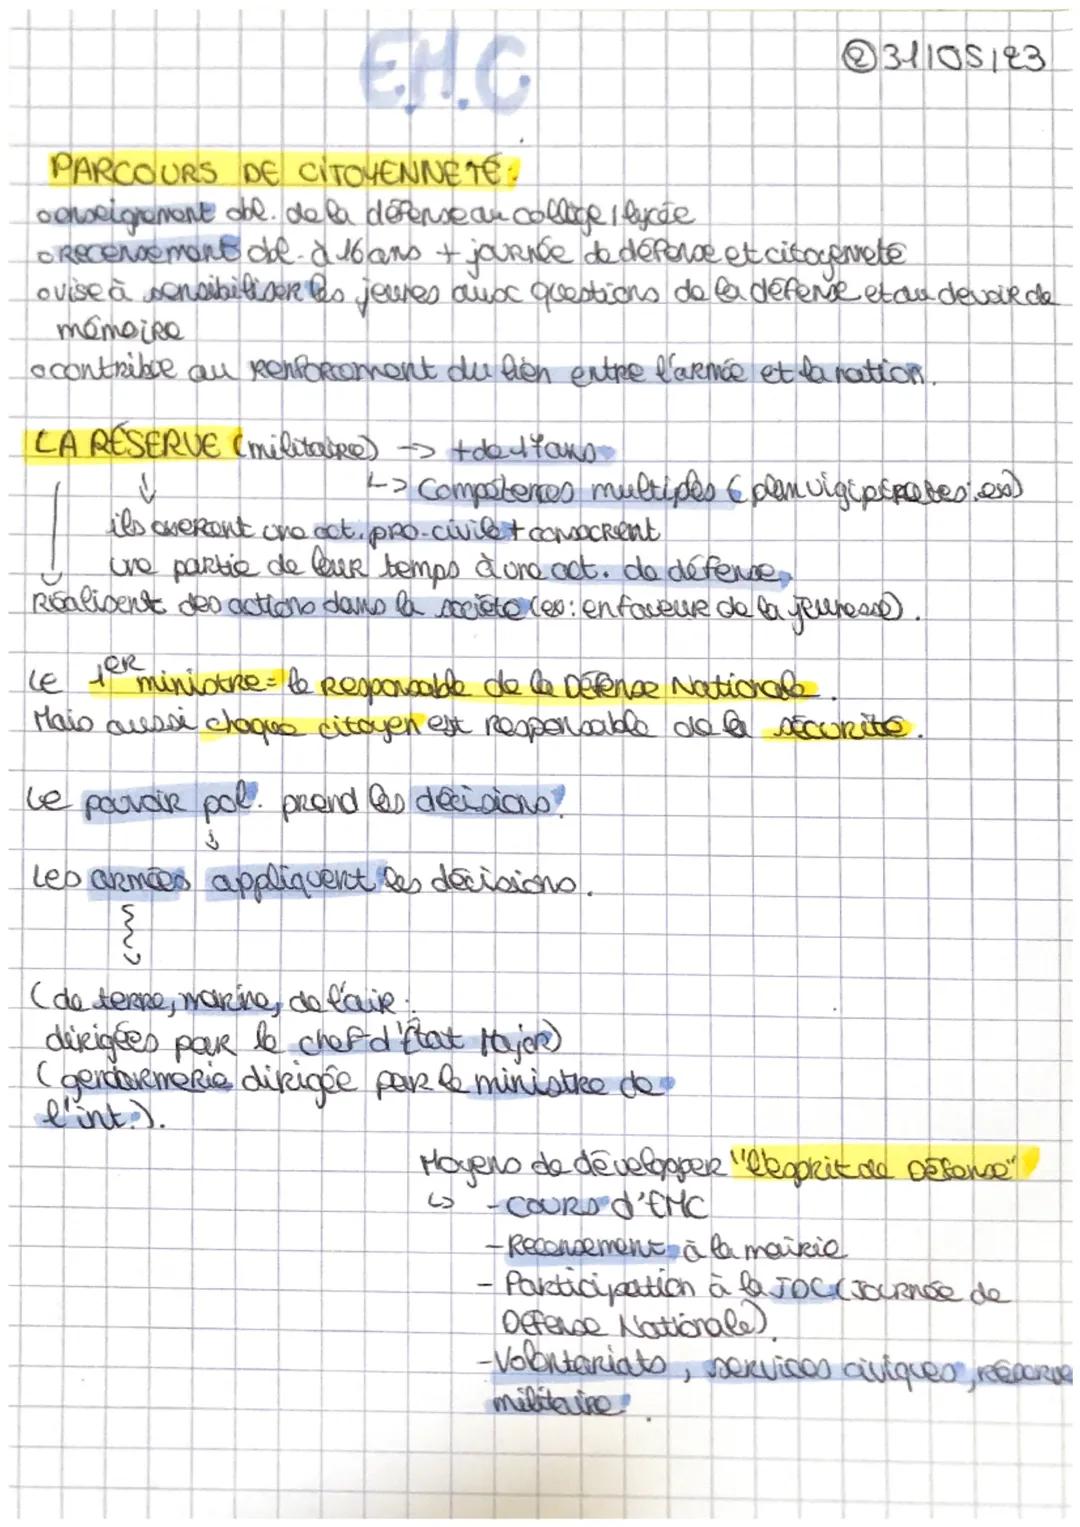 E.M.C
② 31/05/23
PARCOURS DE CITOYENNETÉ:
enseignement obl. de la défense au collège / lycée
recensement obl. à 16 ans + journée de défense et citoyenneté
vise à sensibiliser les jeunes aux questions de la défense et au devoir de
mémoire
contribue au renforcement du lien entre l'armée et la nation.
LA RÉSERVE (militaire) → + de 17 ans
↳ Compétences multiples (plan vigipirates; ex)
ils exercent une act. pro. civile + consacrent
une partie de leur temps à une act. de défense
Réalisent des actions dans la société (ex: en faveur de la jeunesse).
Le 1er ministre = le Responsable de la Défense Nationale.
Mais aussi chaque citoyen est responsable de la sécurité.
Le pouvoir pol. prend les décisions.
Les armées appliquent les décisions.
(de terre, marine, de l'air:
dirigées par le chef d'État Major)
(gendarmerie dirigée par le ministre de
l'int.).
Moyens de développer "l'esprit de Défense"
↳ - COURS d'EMC
- Recensement à la mairie
- Participation à la JDC (Journée de
Défense Nationale)
- Volontariats, services civiques, réserve
militaire.